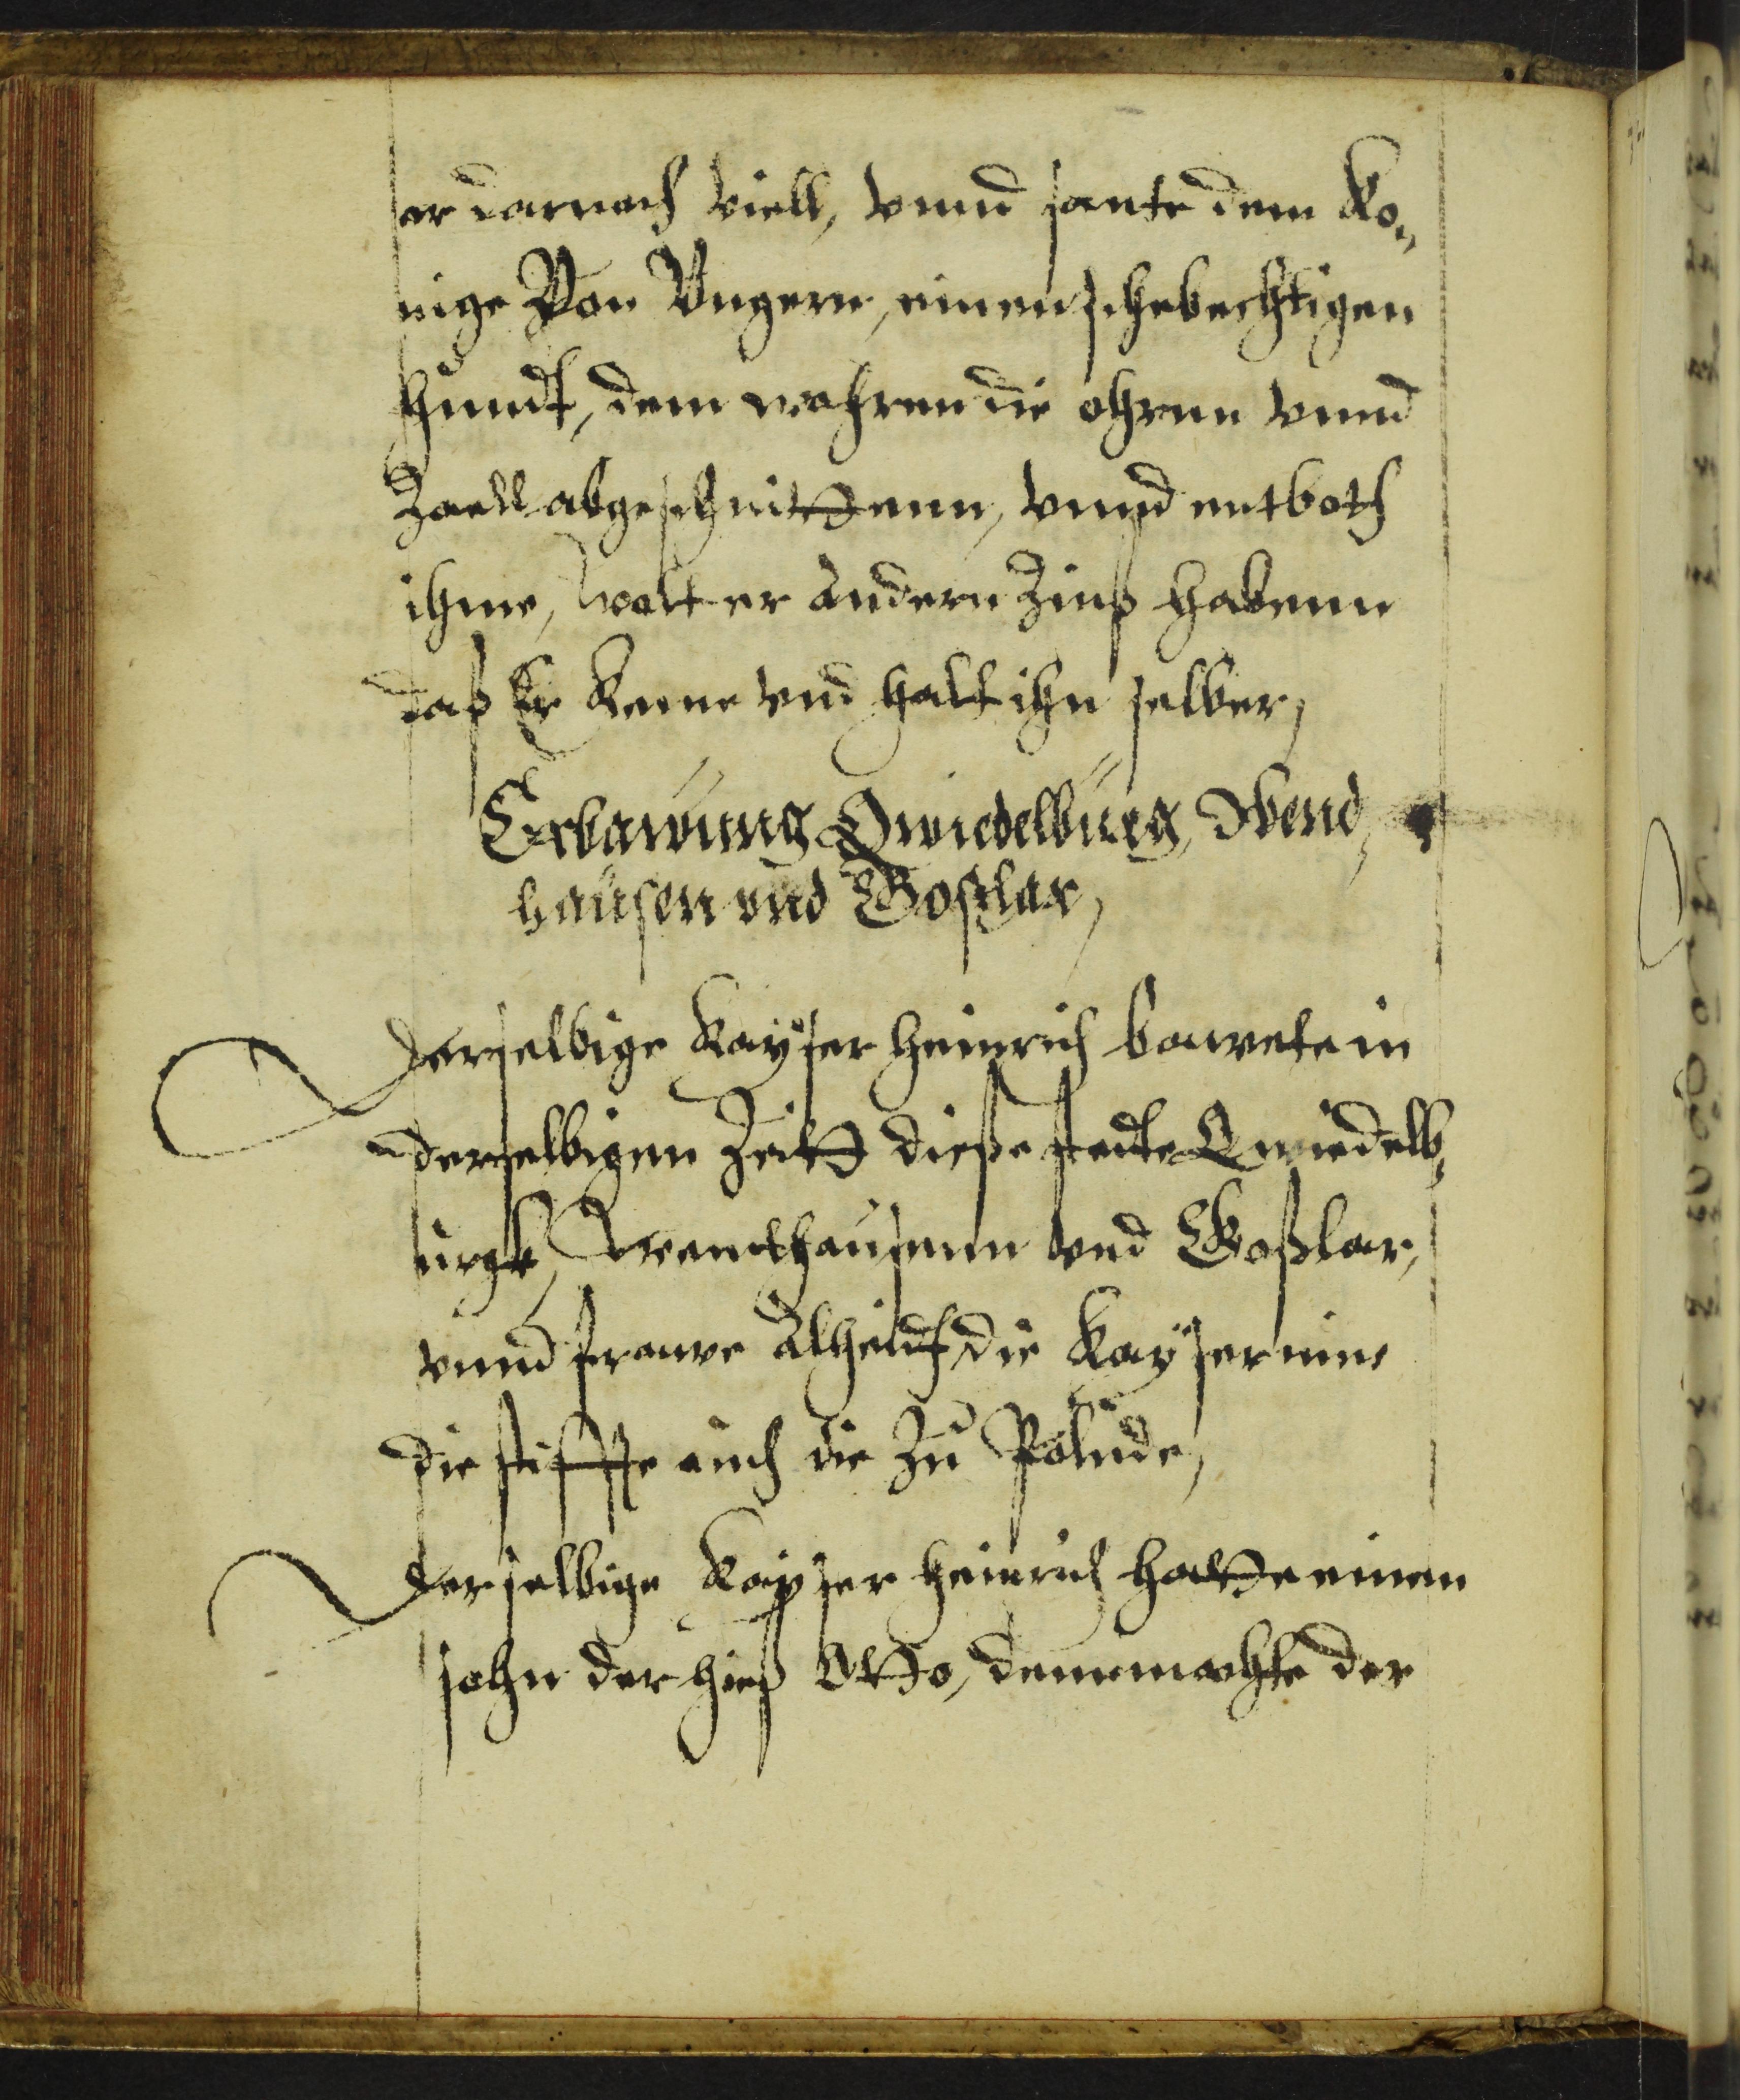 er darnach viell, vnnd sante dem Ko„
nige Von Vngern, einen schebechtigen
hundt, dem wahren die ohren vnnd
Zaell abgeschnittenn, vnnd entboth
ihme, wolt er andern Zinß habenn
daß Er keme vnd halt ihn selber,
Erbawung Qwiedelburg, Wend,
hausen vnd Goslar,
Derselbige Kayser Heinrich bawete in
derselbigen Zeitt dieße stedte Qwiedelb,
urgk, Wenthausenn vnd Goßlar,
vnnd frawe Alheidt die Kayserinne
die stiffte auch die Zu Polude,
Derselbige Kayser Heinrich hatte einen
sohn der hieß Otto, dem machte der